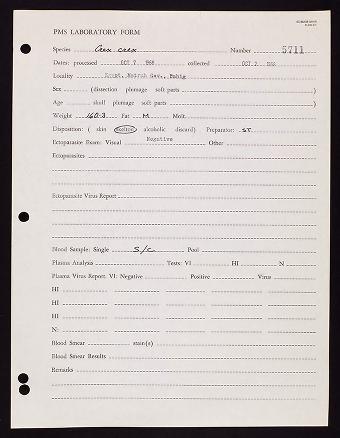 PMS LABORATORY FORM
Species Crex crex Number 5711
Dates: processed OCT 7 1968 collected OCT 2 1968
Locality Egypt, Matruh Gov., Bahig
Sex (dissection plumage soft parts )
Age skull plumage soft parts )
Weight 160.3 Fat M Molt
Disposition: ( skin skeleton alcoholic discard) Preparator: ST
Ectoparasite Exam: Visual Negative Other
Ectoparasites
Ectoparasite Virus Report
Blood Sample: Single S/C Pool
Plasma Analysis Tests: VI HI N
Plasma Virus Report. VI: Negative Positive Virus
HI
HI
HI
N:
Blood Smear stain(s)
Blood Smear Results
Remarks